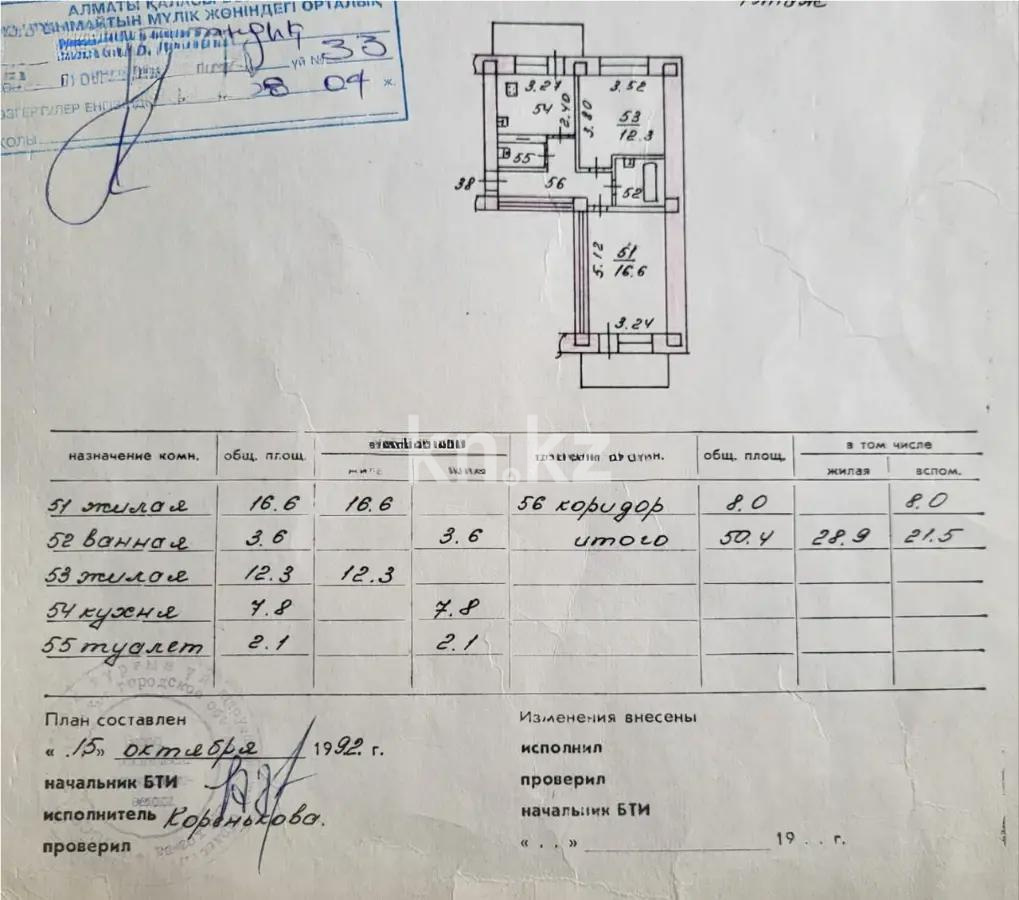 АЛМАТЫ ҚАЛАСЫ
ЖЫЛЖЫМАЙТЫН МҮЛІК ЖӨНІНДЕГІ ОРТАЛЫҚ
үй № 33
28 04 ж.
ӨЗГЕРТУЛЕР ЕНГІЗІЛДІ
ҚОЛЫ
этаж
3.27
3.52
54
2.40
3.80
53
12.3
55
38
56
52
5.12
51
16.6
3.24
kn.kz
назначение комн. общ. площ. общ. площ. в том числе
жилая вспом.
51 жилая 16.6 16.6 56 коридор 8.0 8.0
52 ванная 3.6 3.6 итого 50.4 28.9 21.5
53 жилая 12.3 12.3
54 кухня 7.8 7.8
55 туалет 2.1 2.1
План составлен
« 15» октября 1992 г.
начальник БТИ
исполнитель Коренькова.
проверил
Изменения внесены
исполнил
проверил
начальник БТИ
« . . » 19 . . г.